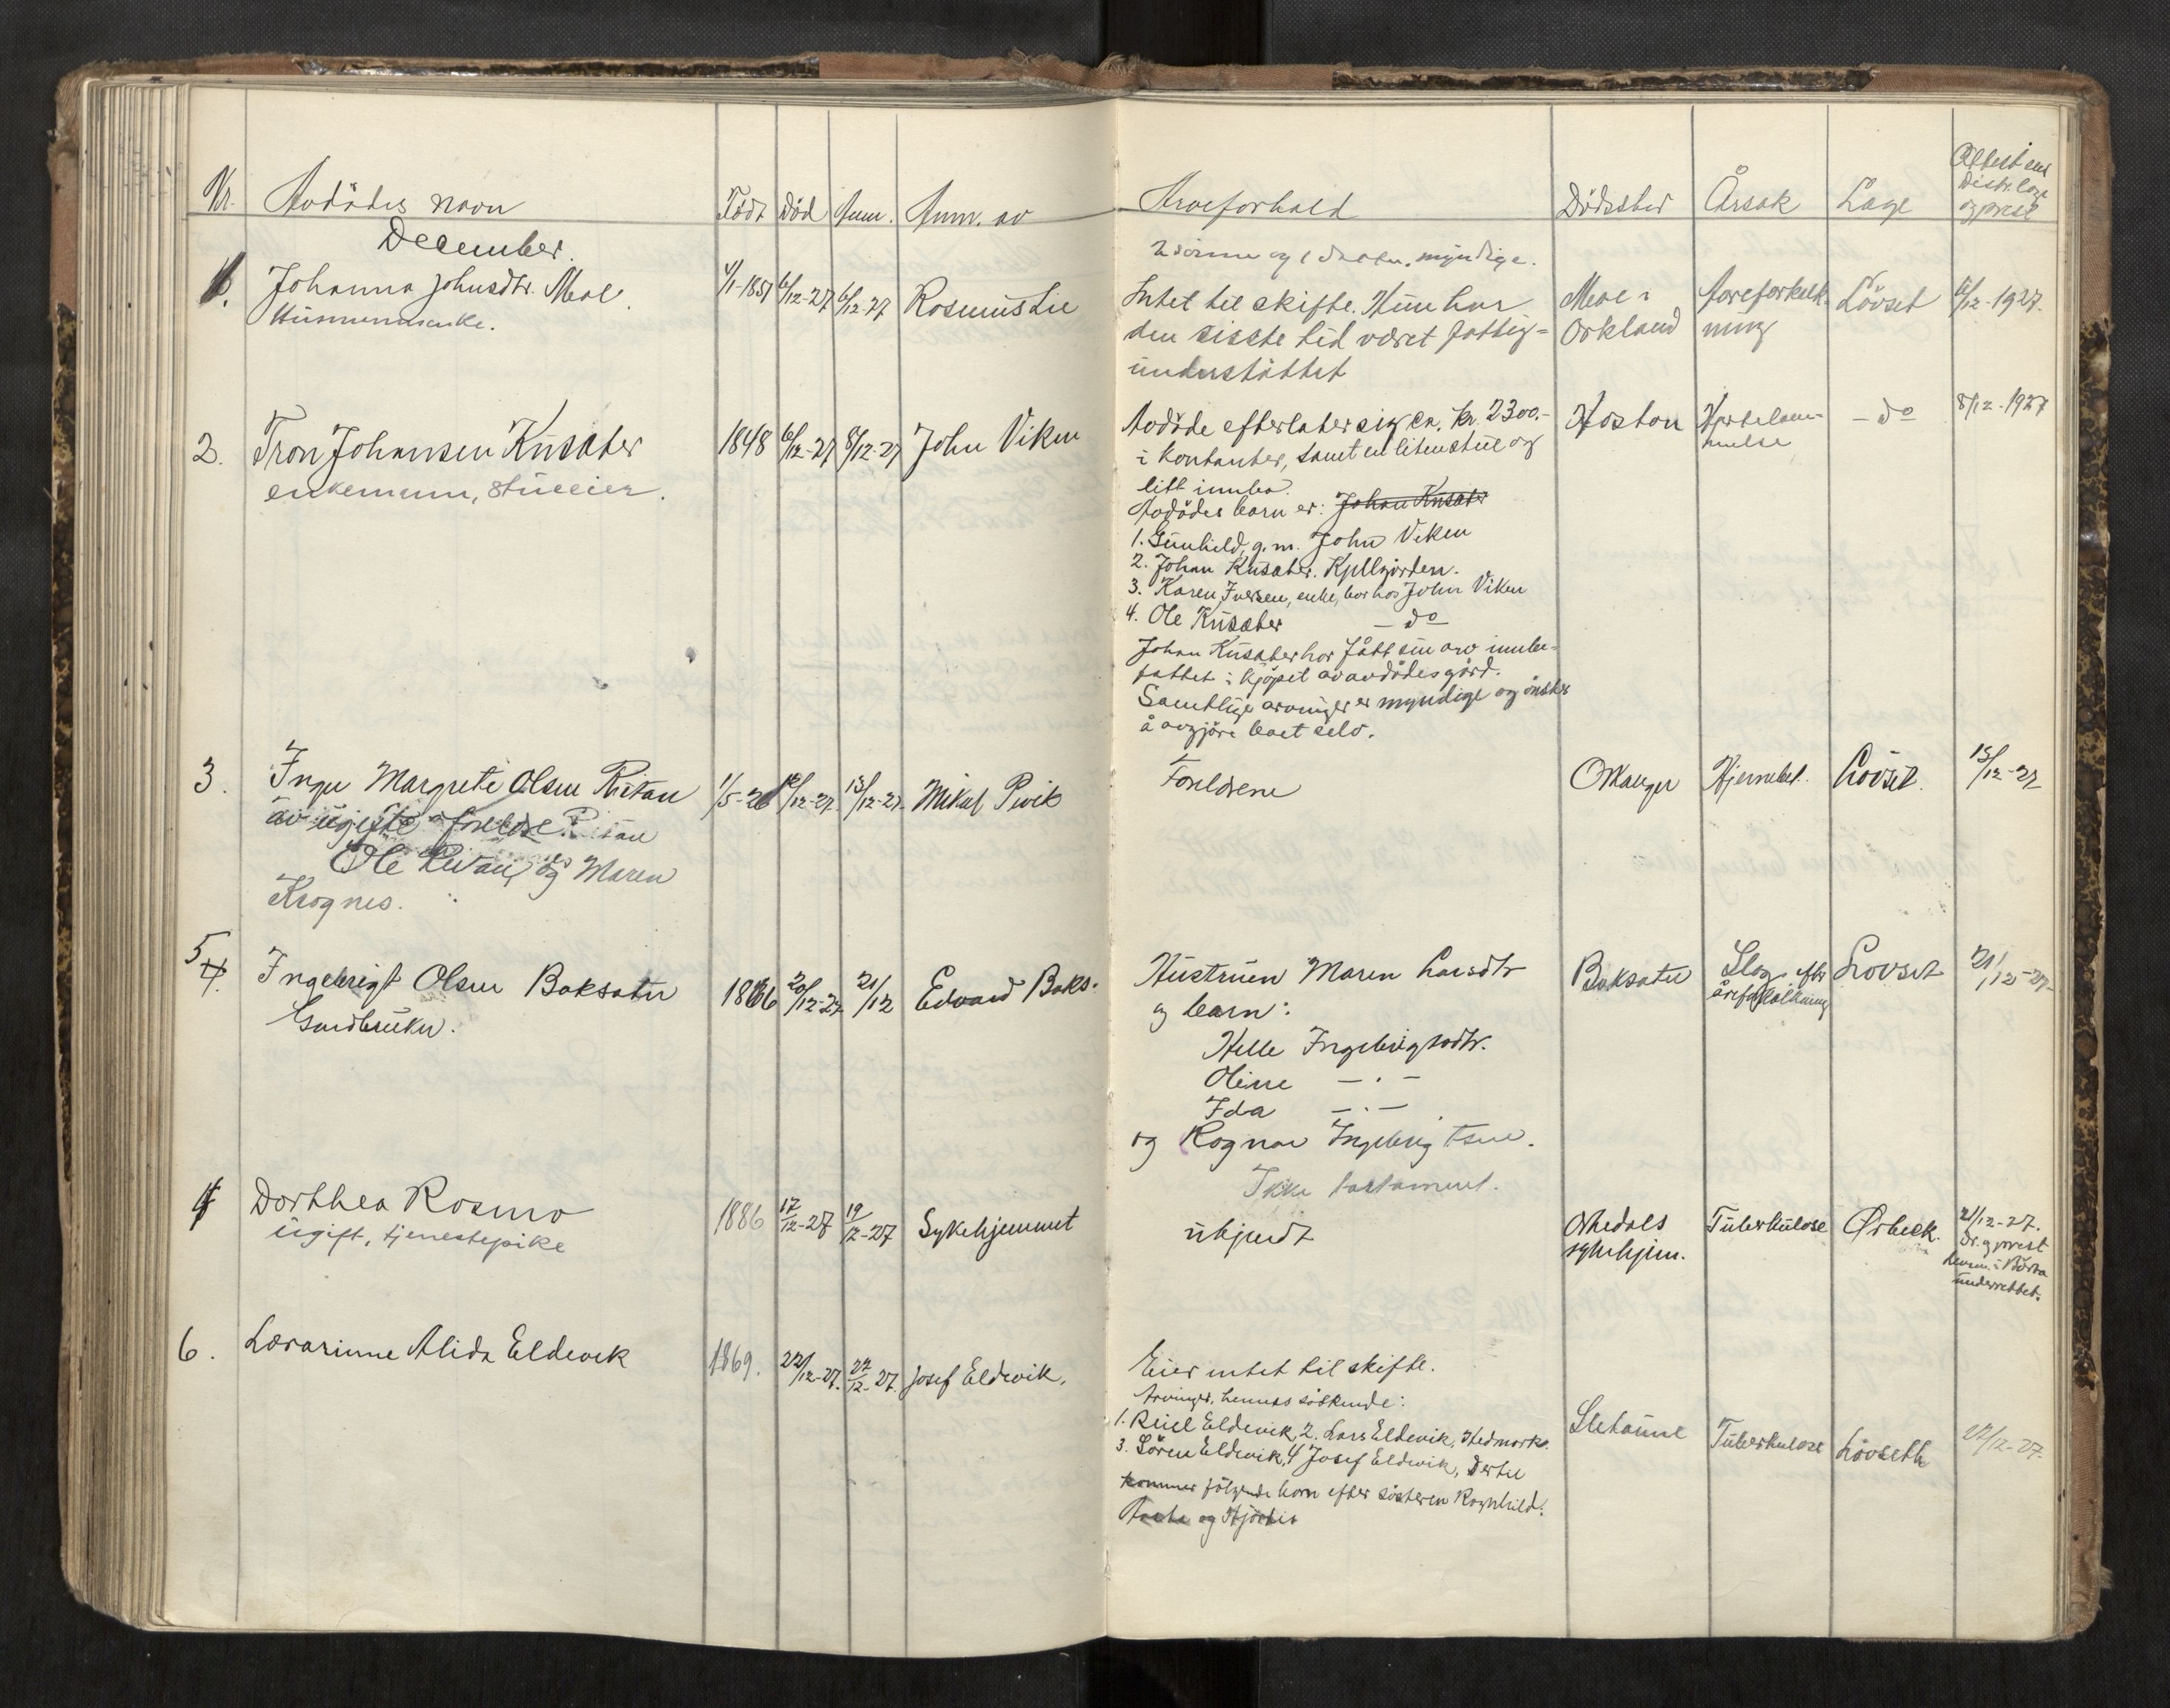 Nr. Avdødes navn Født Død Anm. Anm. av Arveforhold Dødssted Årsak Læge Attest ent
Distr.læge
og prest
December.
1. Johanna Johnsdtr. Moe 4/1-1851 6/12-27 6/12-27 Rasmus Lie
Husmannsenke.
2 sønner og 1 datter, myndige.
Intet til skifte. Hun har
den siste tid været fattig-
understøttet
Moe i
Orkland
Aareforkalk-
ning
Lövset 6/12-1927.
2. Tron Johansen Kusæter 1848 6/12-27 8/12-27 John Viken
enkemann, stueeier.
Avdøde efterlater sig ca. kr. 2300.-
i kontanter, samt en liten stue og
litt innbo.
Avdødes barn er: Johan Kusæter
1. Gunhild, g.m. John Viken
2. Johan Kusæter.
3. Karen Iversen, enke, bor hos John Viken
4. Ole Kusæter - do
Johan Kusæter har fått sin arv innbe-
fattet i kjøpet av avdødes gård.
Samtlige arvinger er myndige og ønsker
å avgjøre boet selv.
Hoston
Hjertelam-
melse
- do 8/12-1927
3. Inga Margrete Olsen Ritan 1/5-26 12/12-27 13/12-27. Mikal
av ugifte foreldre
Ole Ritan, og Maren
Krognes.
Foreldrene
Orkanger Hjernebet. Lövset. 13/12-27
5 4. Ingebrigt Olsen Baksæter 1866 20/12-27 21/12 Edvard Baks.
Gardbruker.
Hustruen Maren Larsdtr
og barn:
Helle Ingebrigtsdtr.
Oline - . -
Ida - . -
og Ragnar Ingebrigtsen.
Ikke testament.
Baksæter
Slag efter
åreforkalkning
Lövset 21/12-27.
4 Dorthea Rosmo 1886 17/12-27 19/12-27 Sykehjemmet
ugift, tjenestepike
ukjendt
Orkedals
sykehjem.
Tuberkulose Ørbeck. 21/12-27.
Dr. og prest
lensm. i Börsa
underrettet.
6. Lærarinne Alida Eldevik 1869. 22/12-27. 27/12-27. Josef Eldevik.
Eier intet til skifte.
Arvinger, hennes søskende:
1. Eldevik, 2. Lars Eldevik, Hedmark.
3. Sören Eldevik, 4 Josef Eldevik, Dertil
kommer følgende barn efter søsteren Ragnhild:
og Hjördis
Tuberkulose Lövseth 27/12-27.